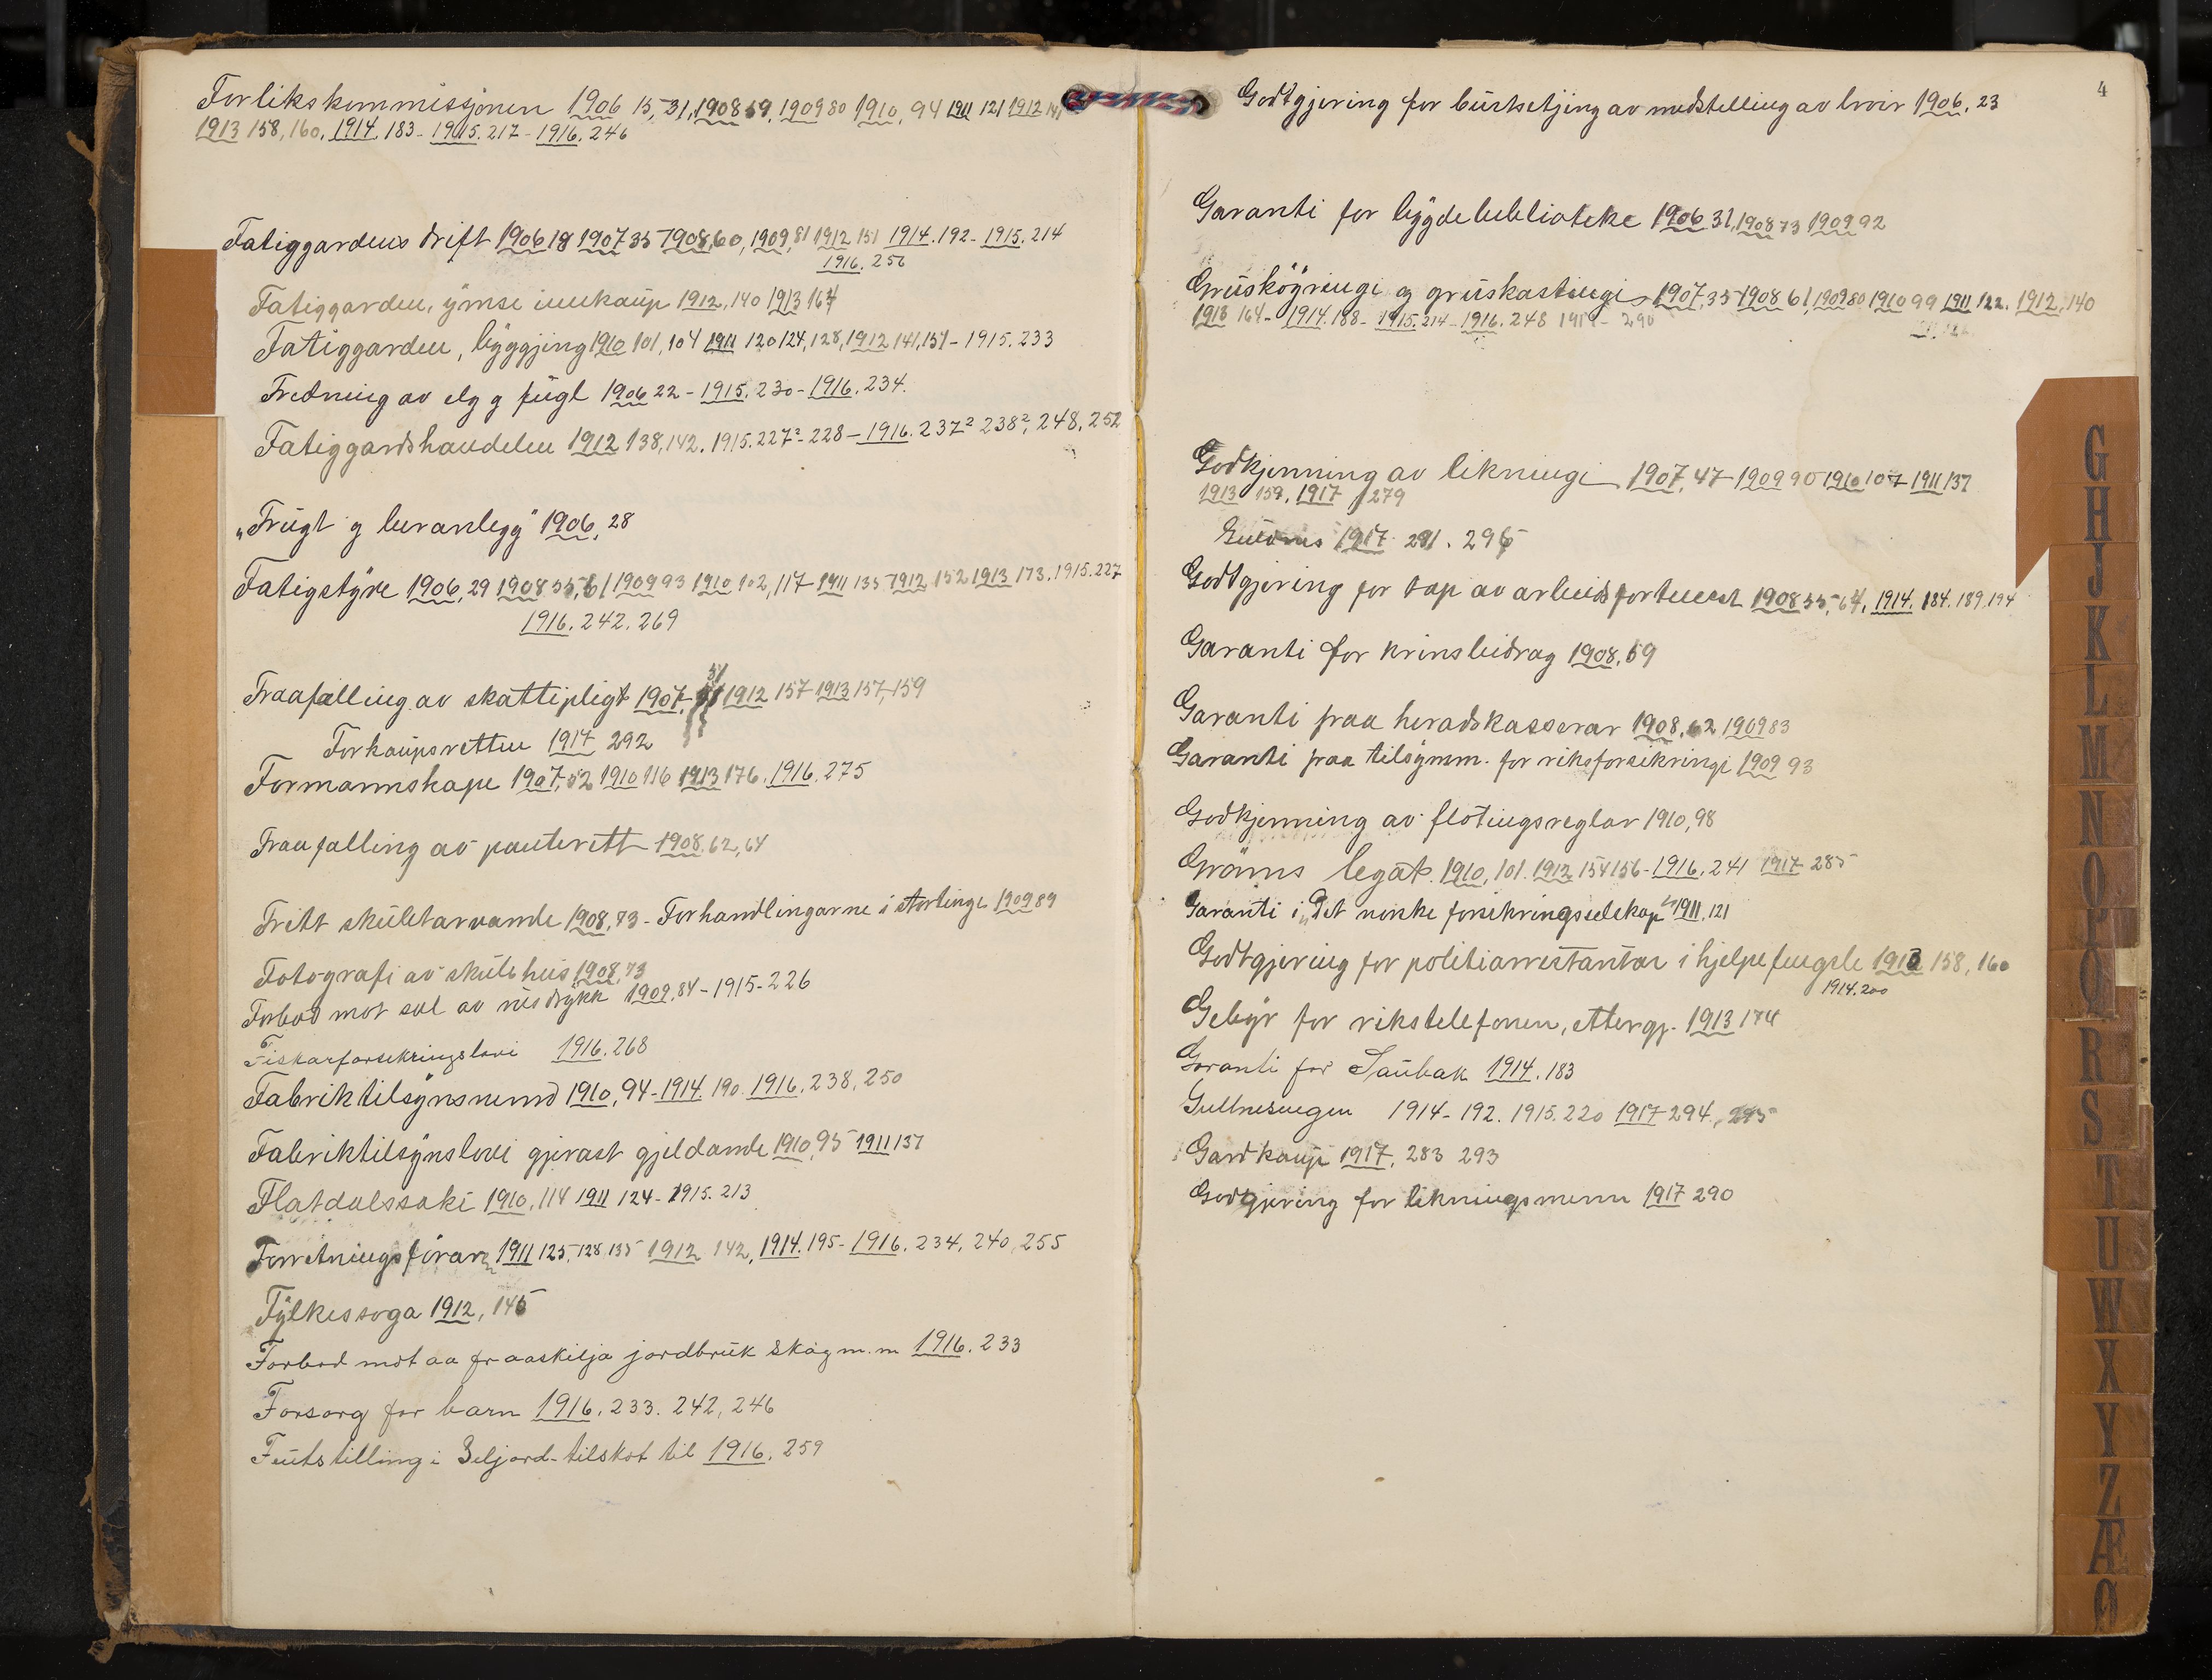 Forlikskommissjonen 1906 15, 31, 1908 59, 1909 80 1910, 94 1911 121 1912 141
1913 158, 160, 1914. 183 - 1915. 217 - 1916. 246
Fatiggardens drift 1906 18 1907 35 1908, 60, 1909, 81 1912 151 1914. 192 - 1915. 214
1916. 256
Fatiggarden, ymse innkaup 1912, 140 1913 164
Fatiggarden, byggjing 1910 101, 104 1911 120 124, 128, 1912 141, 151 - 1915. 233
Fredning av elg g fugl 1906 22 - 1915. 230 - 1916. 234.
Fatiggardshandelen 1912 138, 142. 1915. 227² - 228 - 1916. 237² 238², 248, 252
"Frugt g beranlegg" 1906, 28
Fatigstyre 1906, 29 1908 55, 61 1909 93 1910 102, 117 - 1911 135 1912 152 1913 173. 1915. 227
1916. 242. 269
Fraafalling av skattipligt 1907, 51 1912 157 1913 157, 159
Forkaupsretten 1917 292
Formannskape 1907, 52 1910 116 1913 176. 1916. 275
Fraafalling av panterett 1908, 62, 64
Fritt skuletarvande 1908, 73 - Forhandlingarne i stortinge 1909 89
Fotografi av skulehus 1908, 73
Forbod mot sal av rusdrykk 1909, 84 - 1915 - 226
Fiskarforsekringslovi 1916. 268
Fabriktilsynsnemd 1910, 94 - 1914. 190. 1916. 238, 250
Fabriktilsynslovi gjerast gjeldande 1910, 95 1911 137
Flatdalssaki 1910, 114 1911 124 - 1915. 213
Forretningsførar 1911 125, 128, 135 1912 142, 1914. 195 - 1916. 234, 240, 255
Fylkessoga 1912, 145
Forbod mot aa fraaskilja jordbruk skog m. m 1916. 233
Forsorg for barn 1916. 233. 242, 246
Futstilling i Seljord - tilskot til 1916. 259
4
Godtgjering for burtsetjing av nedstelling av kvoir 1906. 23
Garanti for bygdebiblioteke 1906 31, 1908 73 1909 92
Gruskøyringi og gruskastingi 1907, 35 1908 61, 1909 80 1910 99 1911 122. 1912, 140
1913 164 - 1914. 188 - 1915. 214 - 1916. 248 1917 - 290
Godkjenning av likningi 1907, 47 - 1909 90 1910 107 1911 137
1913 159, 1917 279
1917 291. 295
Godtgjering for tap av arbeidsforteneste 1908 55, 64, 1914. 184. 189. 194
Garanti for krinsbidrag 1908, 59
Garanti fraa heradskasserar 1908, 62 1909 83
Garanti fraa tilsynsm. for riksforsikringi 1909 93
Godkjenning av fløtingsreglar 1910, 98
Grøms legat. 1910, 101. 1912 154 156 - 1916. 241 1917 285
Garanti i "Det norske forsekringsselskap" 1911, 121
Godtgjering for politiarrestantar i hjelpefengsle 1913 158, 160
1914. 200
Gebyr for rikstelefonen, ettergj. 1913 174
Garanti for Saubak 1914. 183
Gullnesvegen 1914 - 192. 1915. 220 1917 294, 295
Gardkaup 1917, 283 293
Godtgjering for likningsmenn 1917 290
G
H
J
K
L
M
N
O
P
Q
R
S
T
U
W
X
Y
Z
Æ
Ø